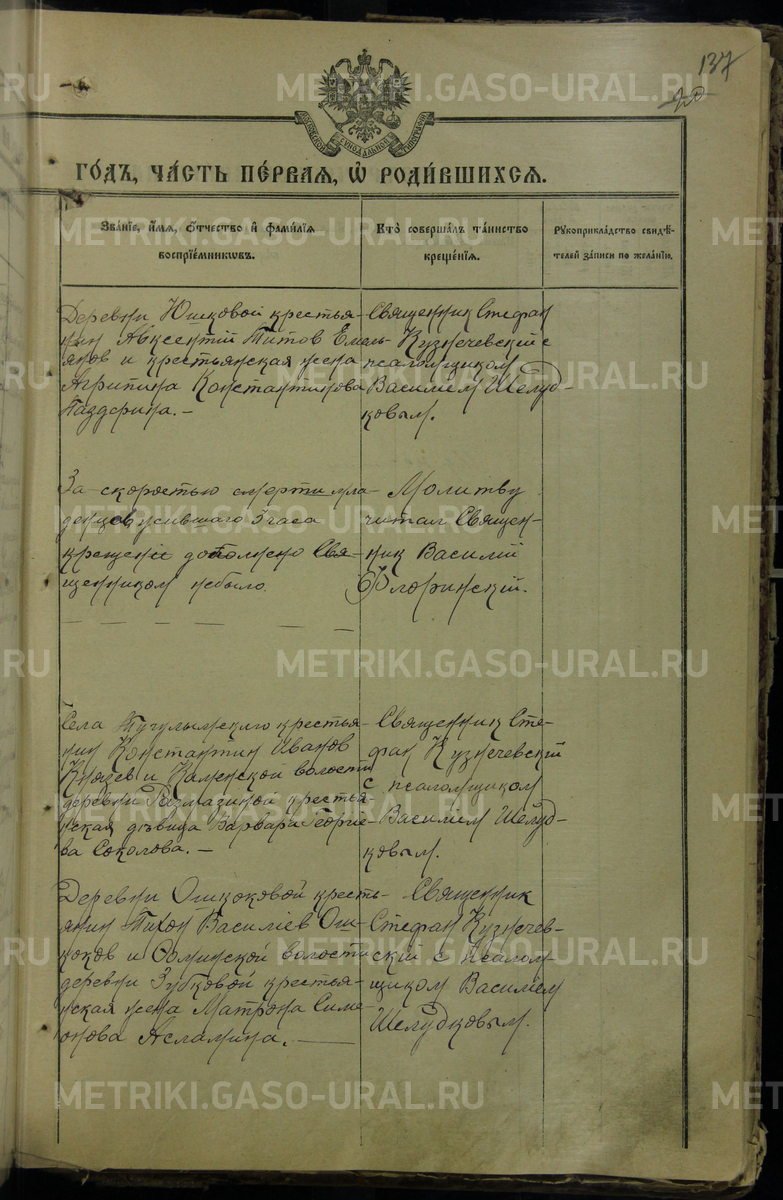 137
20
МОСКОВСКОЙ СУНОДАЛЬНОЙ ТИПОГРАФІИ
ГО́ДЪ, ЧА́СТЬ ПЕ́РВАЯ, Ѡ҆ РОДИ́ВШИХСЯ.
Зва́нїе, и҆́мя, ѻ҆́тчество и҆ фами́лїя
воспрїе́мникѡвъ.
Кто̀ соверша́лъ та́инство
креще́нїя.
Рꙋкоприкла́дство свидѣ́-
телей за́писи по жела́нїю.
Деревни Юшковой крестья-
нин Авксентій Титов Емель-
янов и крестьянская жена
Агрипина Константинова
Паздерина. –
Священник Стефан
Кузнечевский с
псаломщиком
Василіем Шелуд-
ковым.
За скоростью смерти мла-
денцев жившаго 3 часа
крещеніе дополнено Свя-
щенником небыло.
Молитву
читал Священ-
ник Василій
Флоринскій.
Села Тугулымскаго крестья-
нин Константин Иванов
Князев и Каменской волости
деревни Размазиной крестья-
нская дѣвица Варвара Георгие-
ва Соколова. –
Священник Сте-
фан Кузнечевскій
с псаломщиком
Василіем Шелуд-
ковым.
Деревни Ошкоковой кресть-
янин Тихон Василіев Ош-
коков и Фоминской волости
деревни Зубковой крестья-
нская жена Матрона Симе-
онова Асламина. —
Священник
Стефан Кузнечев-
скій с псалом-
щиком Василіем
Шелудковым.
METRIKI.GASO-URAL.RU